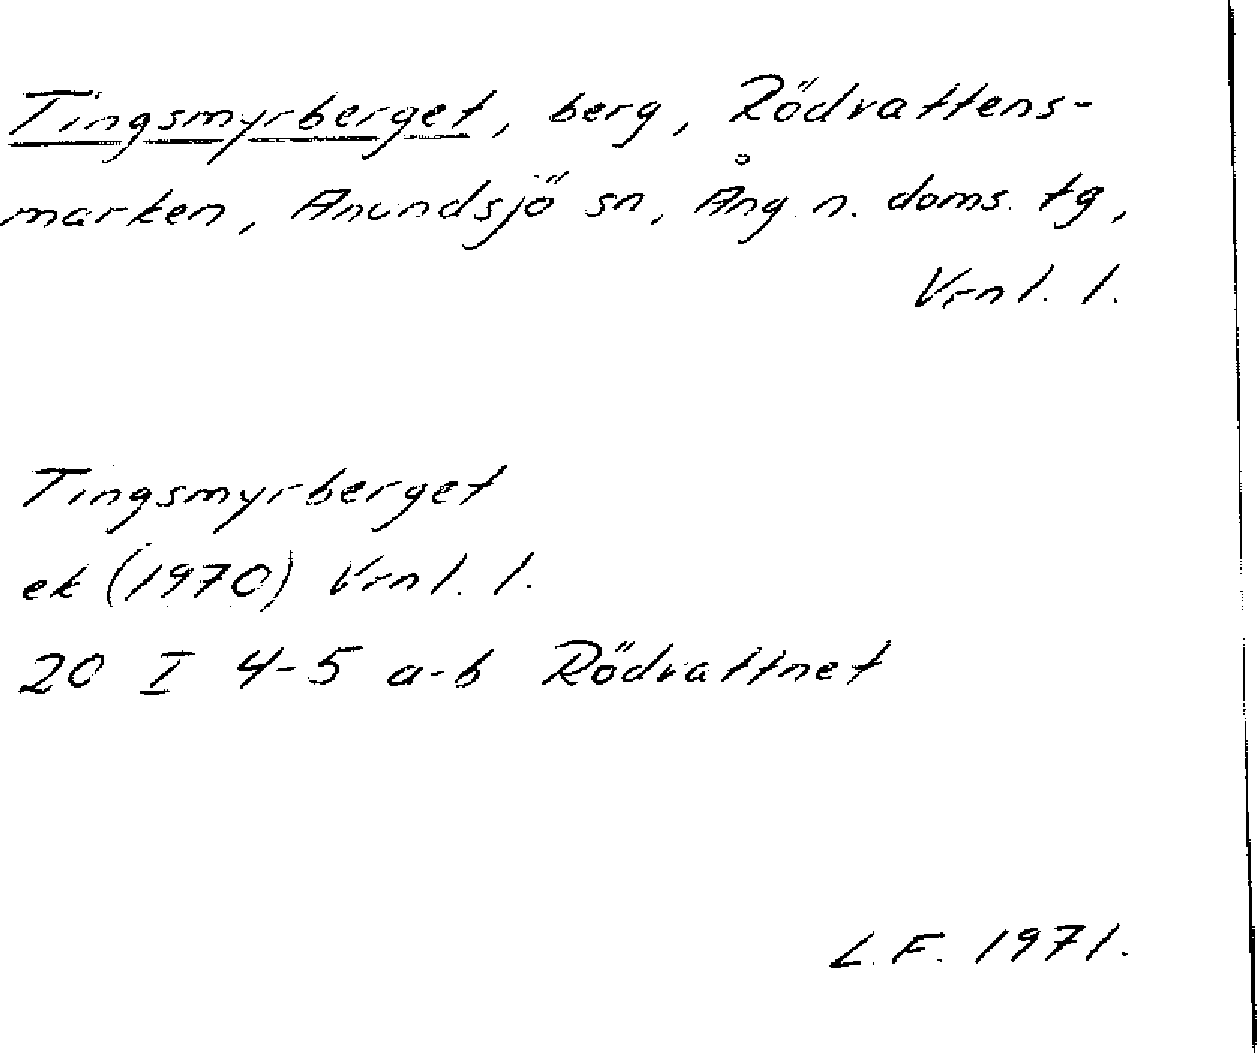 Tingsmyrberget, berg, Rödvattens-
marken, Anundsjö sn, Ång. n. doms. tg,
Vrnl. l.
Tingsmyrberget
ek (1970) Vrnl. l.
20 I 4-5 a-b Rödvattnet
L.F. 1971.